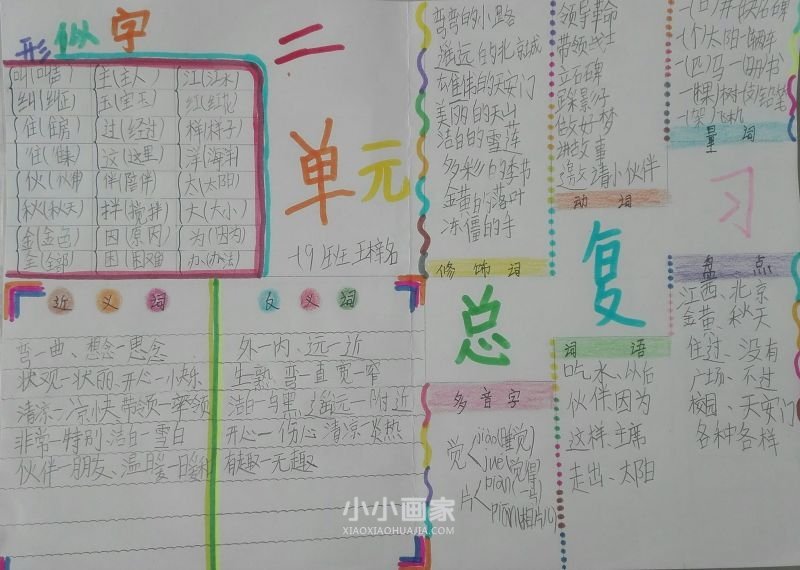 形似字
叫(叫喊) 主(主人) 江(江水)
纠(纠正) 玉(宝玉) 红(红花)
住(住房) 过(经过) 样(样子)
往( 这(这里) 洋(海洋)
伙(伙伴) 伴(陪伴) 太(太阳)
秋(秋天) 拌(搅拌) 大(大小)
金(金色) 因(原因) 为(因为)
全(全部) 困(困难) 办(办法)
二
单元
一(9)班
近义词
弯—曲、想念—思念
状观—状丽、开心—快乐
清凉—凉爽 带领—率领
非常—特别 洁白—雪白
伙伴—朋友、温暖—暖和
反义词
外—内、远—近
生熟 弯—直 宽—窄
洁白—乌黑、遥远—附近
开心—伤心 清凉—炎热
有趣—无趣
弯弯的小路
遥远的北京城
雄伟的天安门
美丽的天山
洁白的雪莲
多彩的季节
金黄的落叶
冻僵的手
修饰词
领导革命
带领战士
立石碑
踩影子
做好梦
讲故事
邀请小伙伴
动词
一(个)太阳一(辆)车
一(匹)马一(册)书
一(棵)树一(支)铅笔
一(架)飞机
量词
总复习
多音字
觉 jiào(睡觉)
jué(觉得)
片
piàn(相片儿)
词语
吃水、以后
伙伴、因为
这样、主席
走出、太阳
盘点
江西、北京
金黄、秋天
住过、没有
广场、不过
校园、天安门
各种各样
小小画家
XIAOXIAOHUAJIA.COM